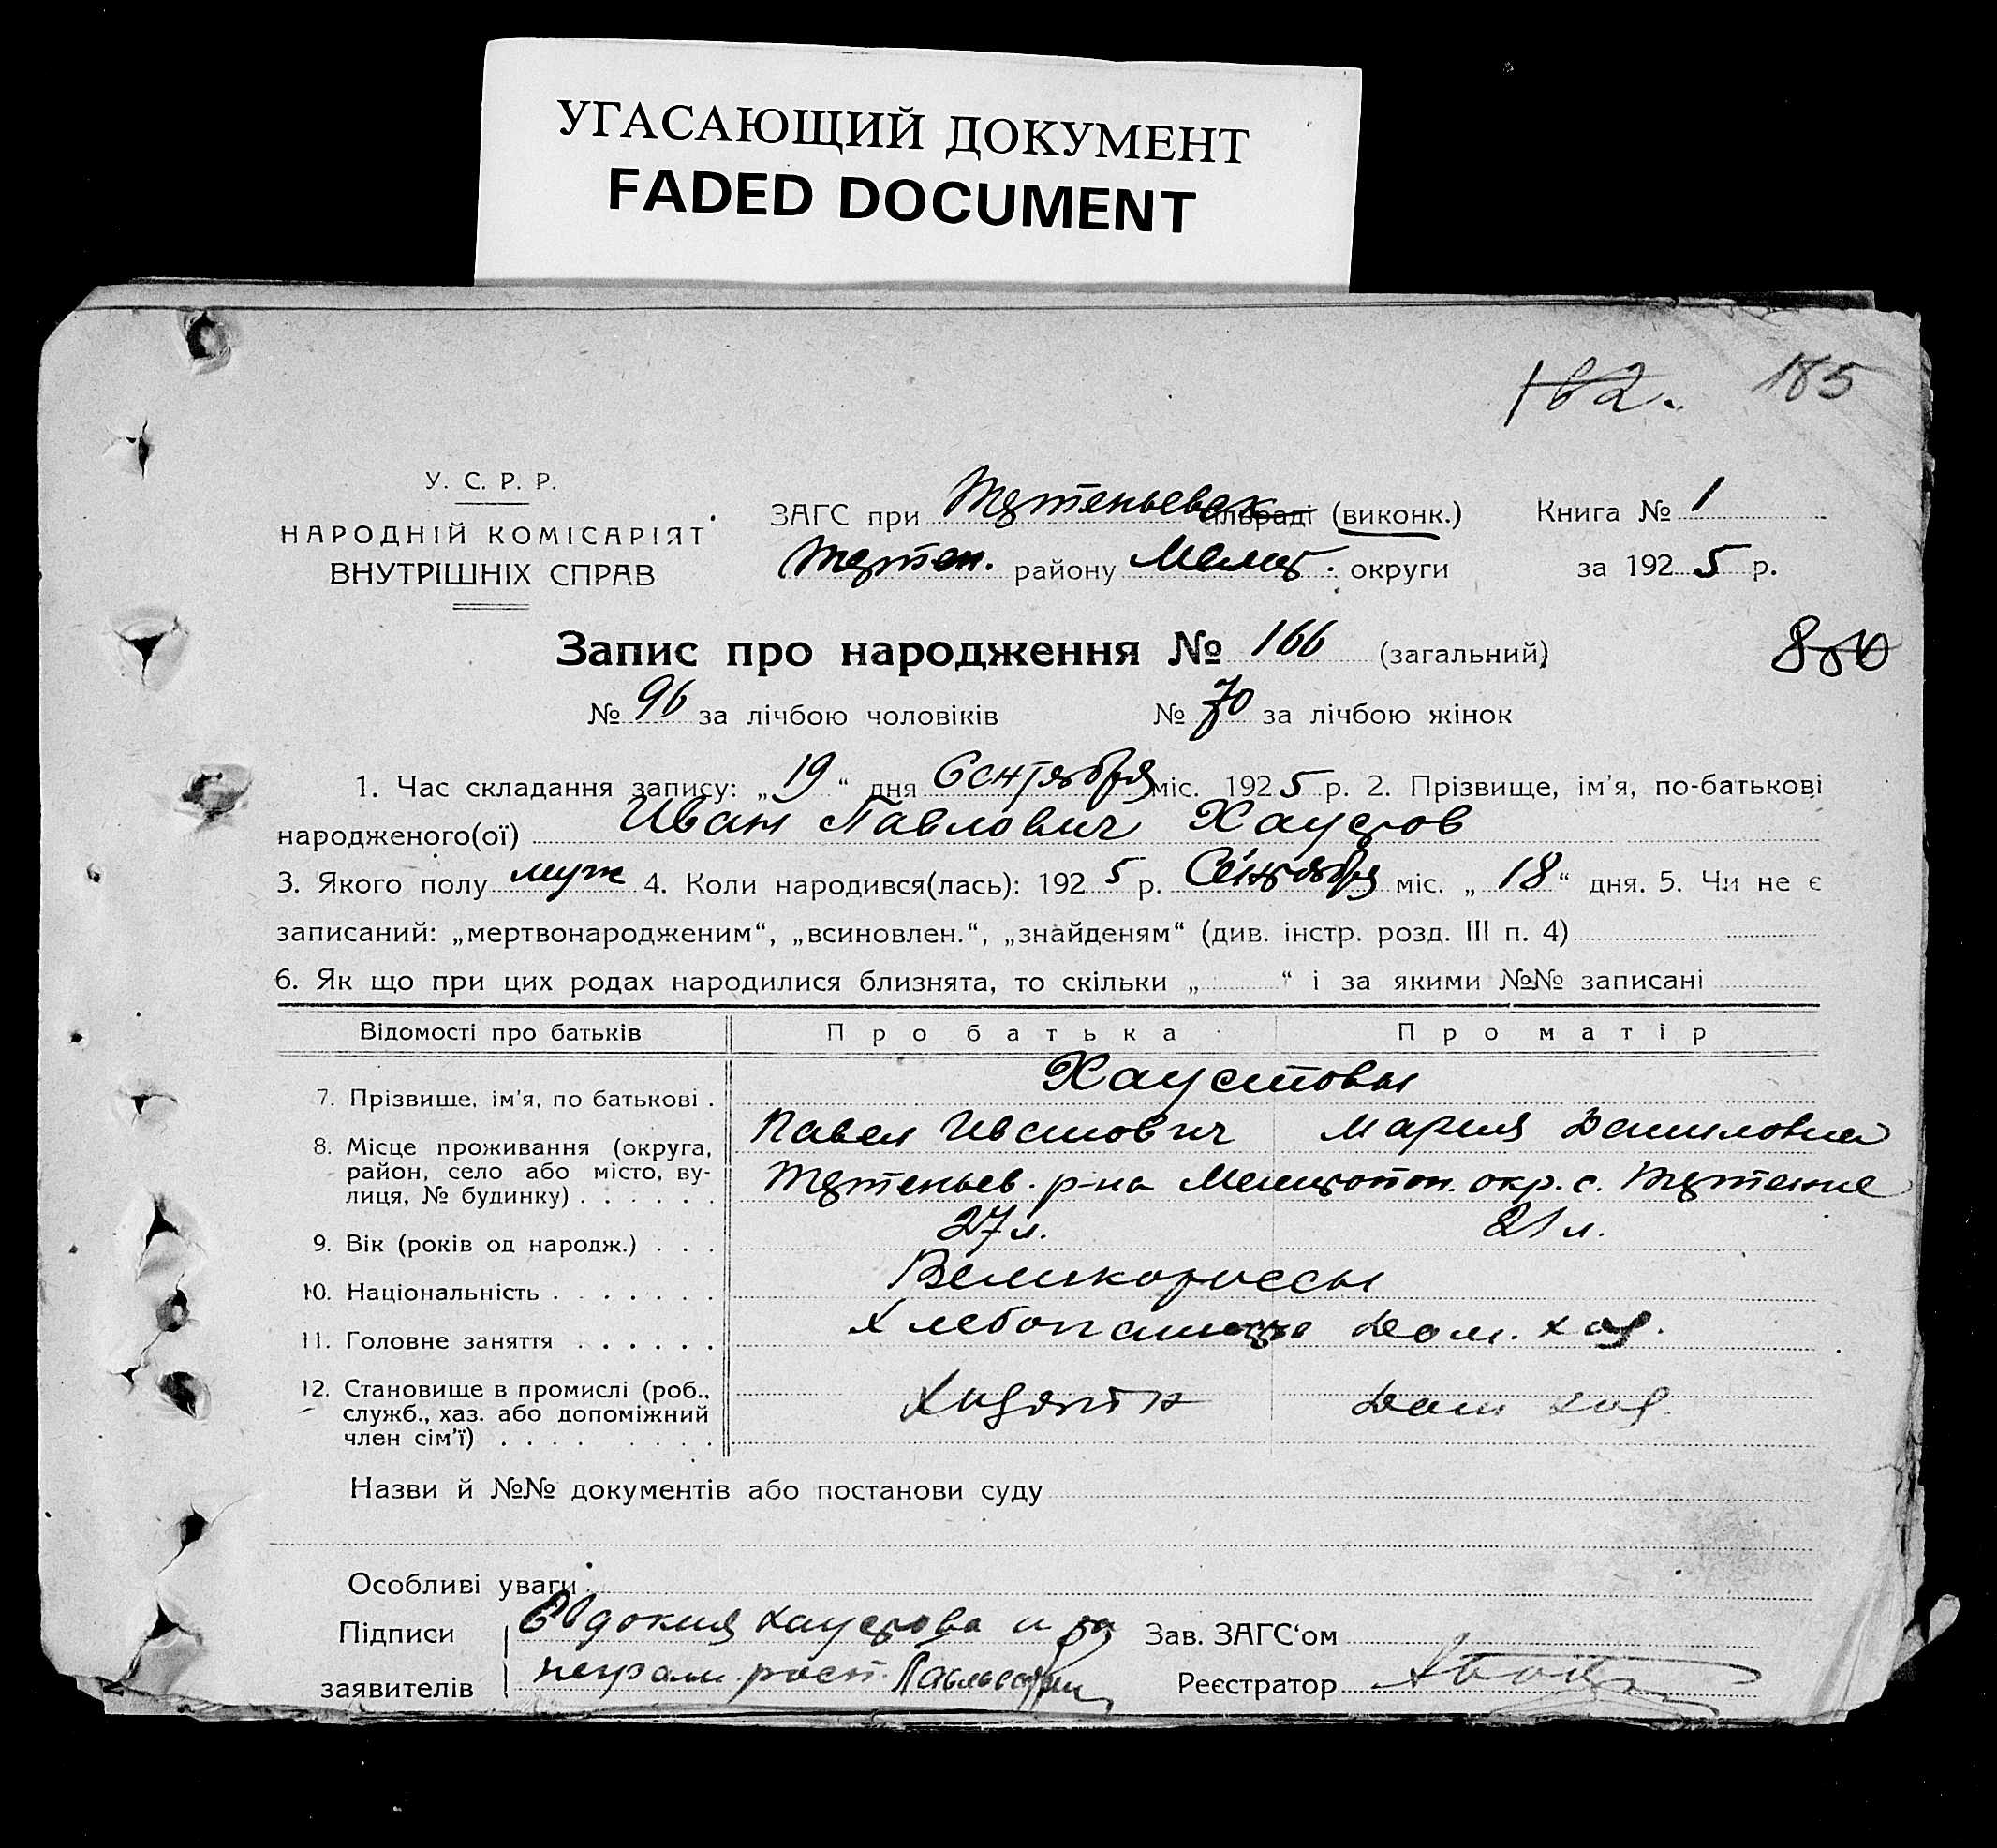 УГАСАЮЩИЙ ДОКУМЕНТ
FADED DOCUMENT
162. 185
У. С. Р. Р.
НАРОДНІЙ КОМІСАРІЯТ
ВНУТРІШНІХ СПРАВ
ЗАГС при сільраді (виконк.) Книга № 1
району Мелит. округи за 1925 р.
Запис про народження № 166 (загальний)
№ 96 за лічбою чоловіків № 70 за лічбою жінок
1. Час складання запису: „19“ дня Сентября міс. 1925 р. 2. Прізвище, ім'я, по-батькові
народженого(ої) Иван Павлович Хаустов
3. Якого полу муж 4. Коли народився(лась): 1925 р. Сентября міс. „18“ дня. 5. Чи не є
записаний: „мертвонародженим“, „всиновлен.“, „знайденям“ (див. інстр. розд. III п. 4)
6. Як що при цих родах народилися близнята, то скільки „ “ і за якими №№ записані
Відомості про батьків Про батька Про матір
Хаустовы
7. Прізвище, ім'я, по батькові . Павел Иванович Мария Даниловна
8. Місце проживання (округа,
район, село або місто, ву-
лиця, № будинку) . . . . . . р-на Мелитопол. окр. с.
9. Вік (років од народж.) . . . 27 л. 21 л.
10. Національність . . . . . . . Великороссы
11. Головне заняття . . . . . . Хлебопашество Дом. хоз.
12. Становище в промислі (роб.,
служб., хаз. або допоміжний
член сім'ї) . . . . . . . . Хозяин Дом хоз.
Назви й №№ документів або постанови суду
Особливі уваги
Підписи Евдокия Хаустова и за Зав. ЗАГС'ом
заявителів неграм. расп. Реєстратор